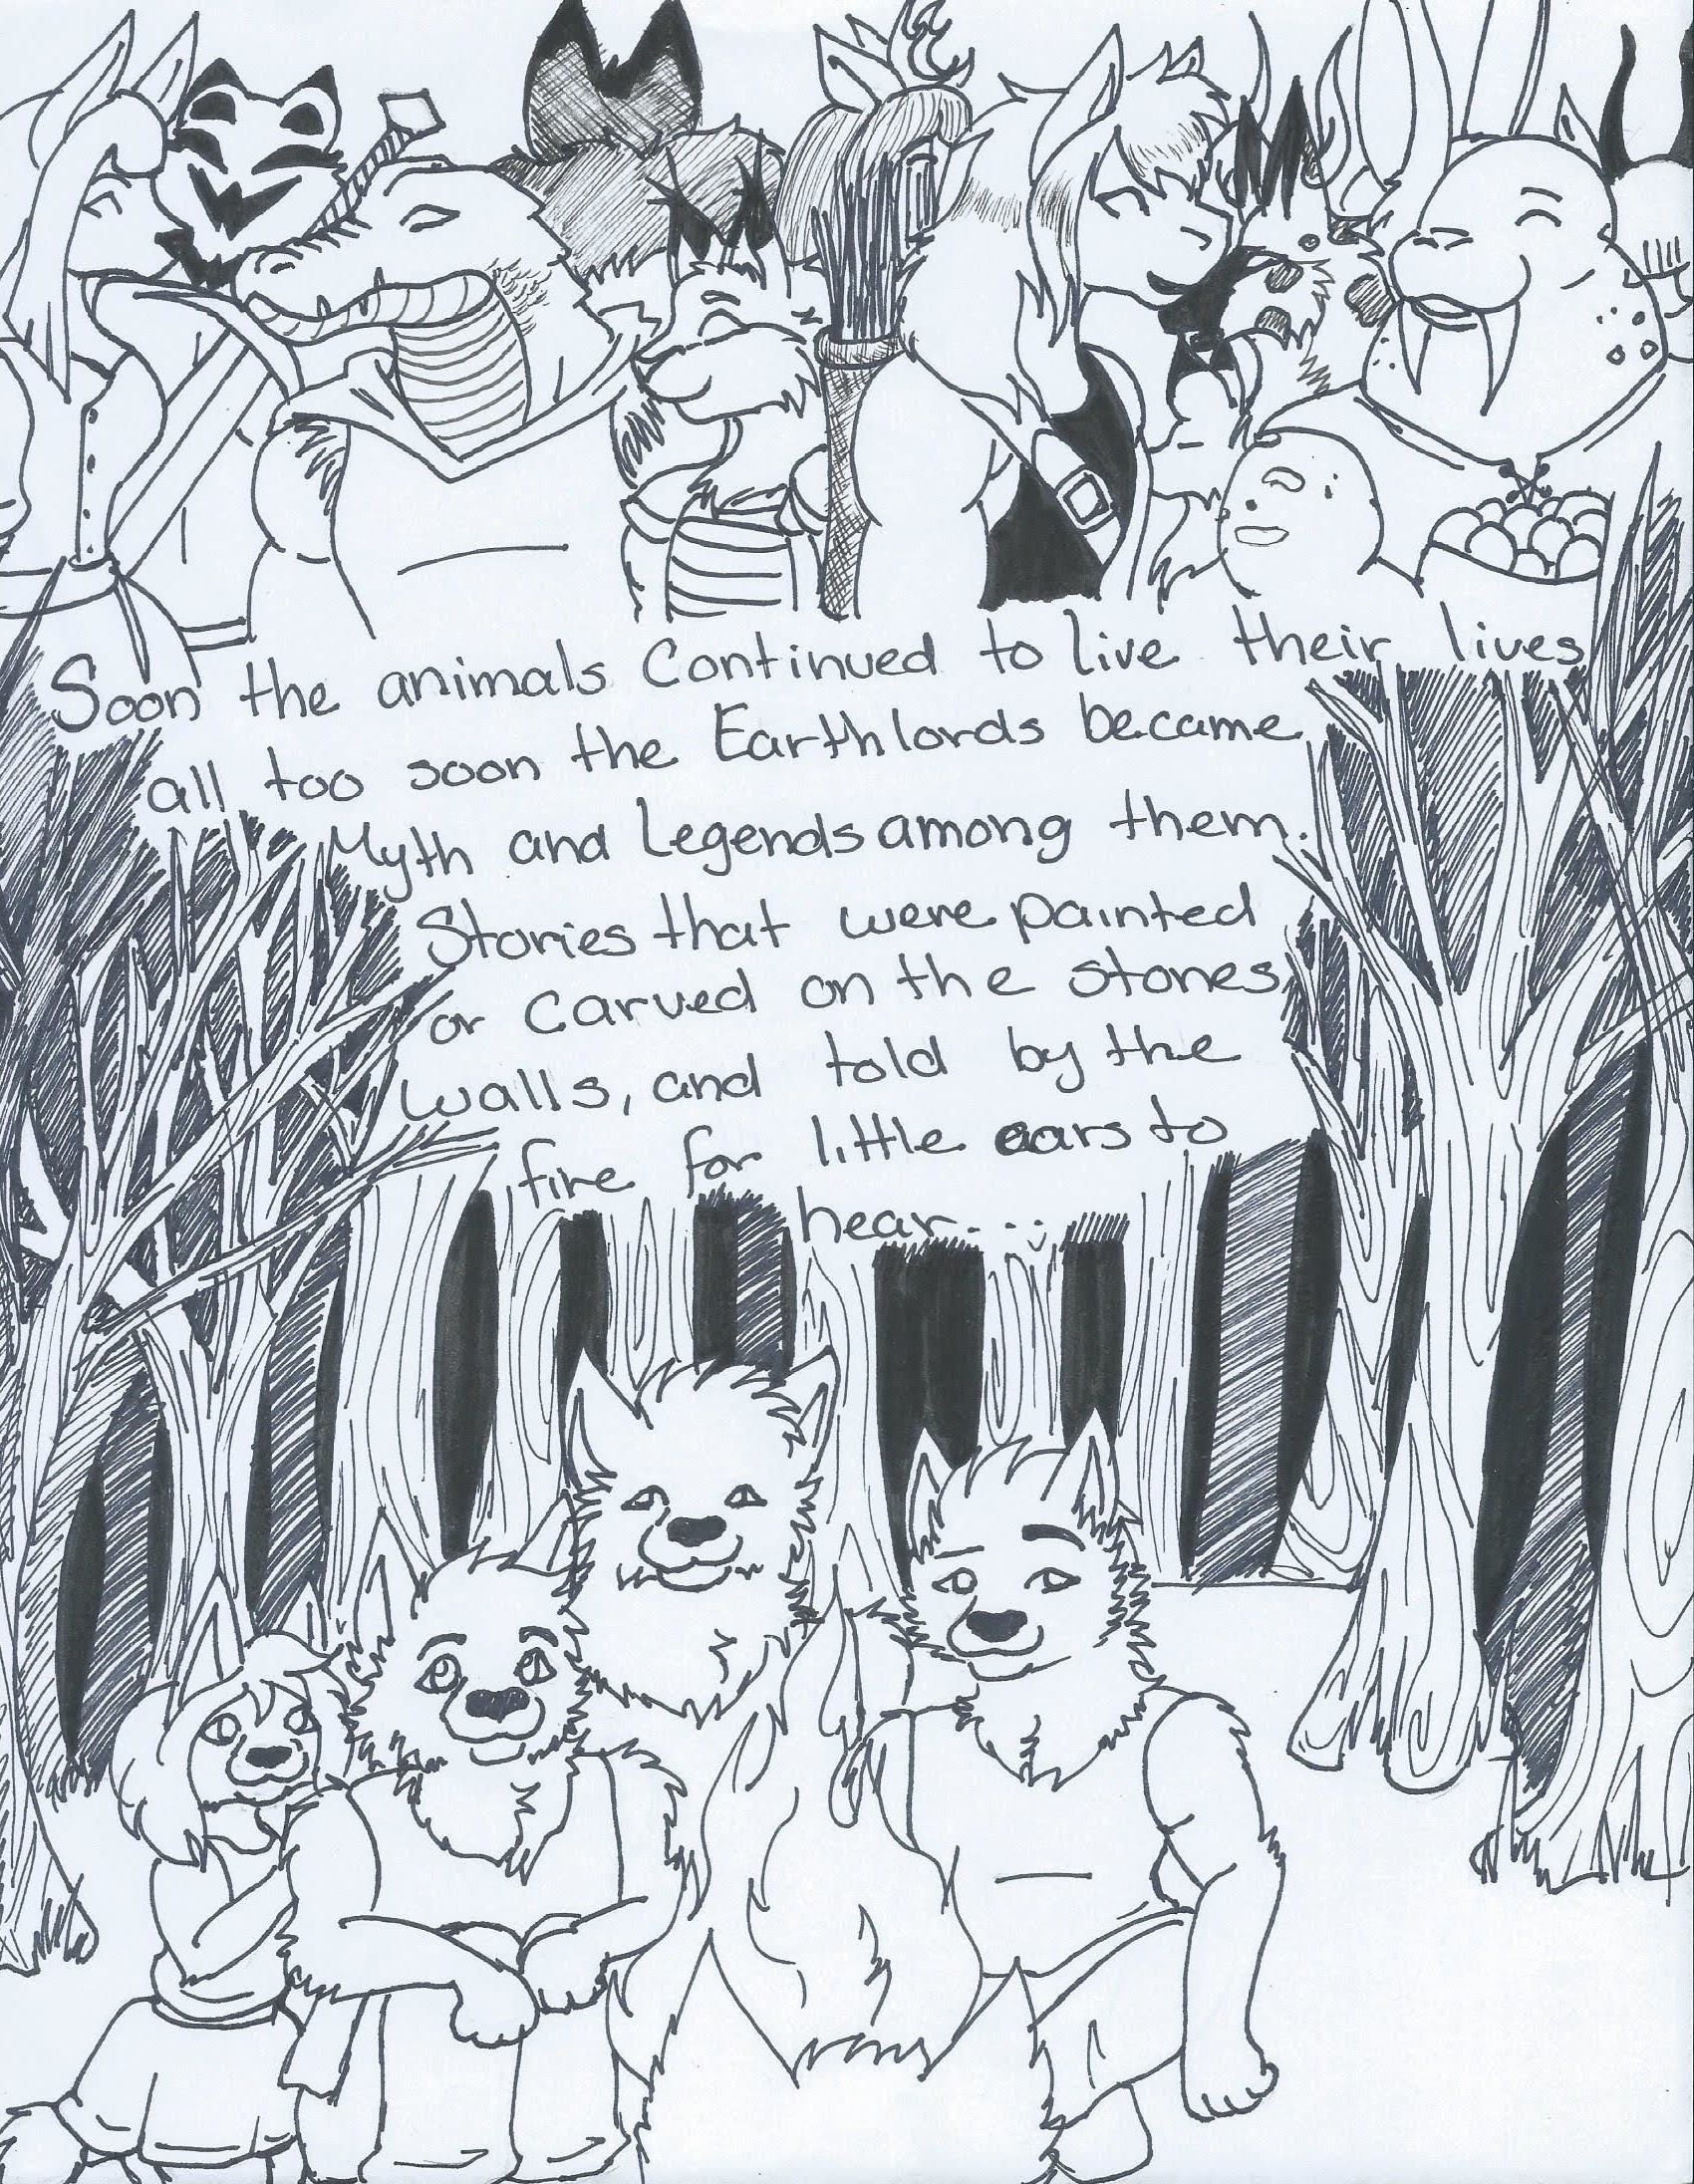 Soon the animals Continued to live their lives
all too soon the Earthlords became
Myth and Legends among them.
Stories that were painted
or carved on the stones
walls, and told by the
fire for little ears to
hear...